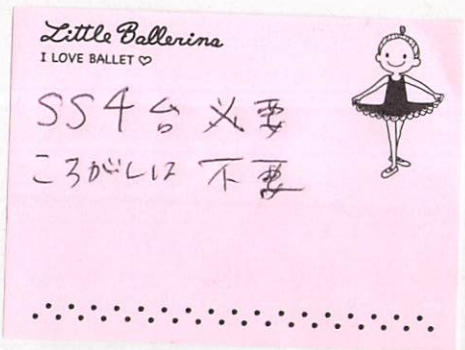 Little Ballerina
I LOVE BALLET ♡
SS4台 必要
ころがしは 不要